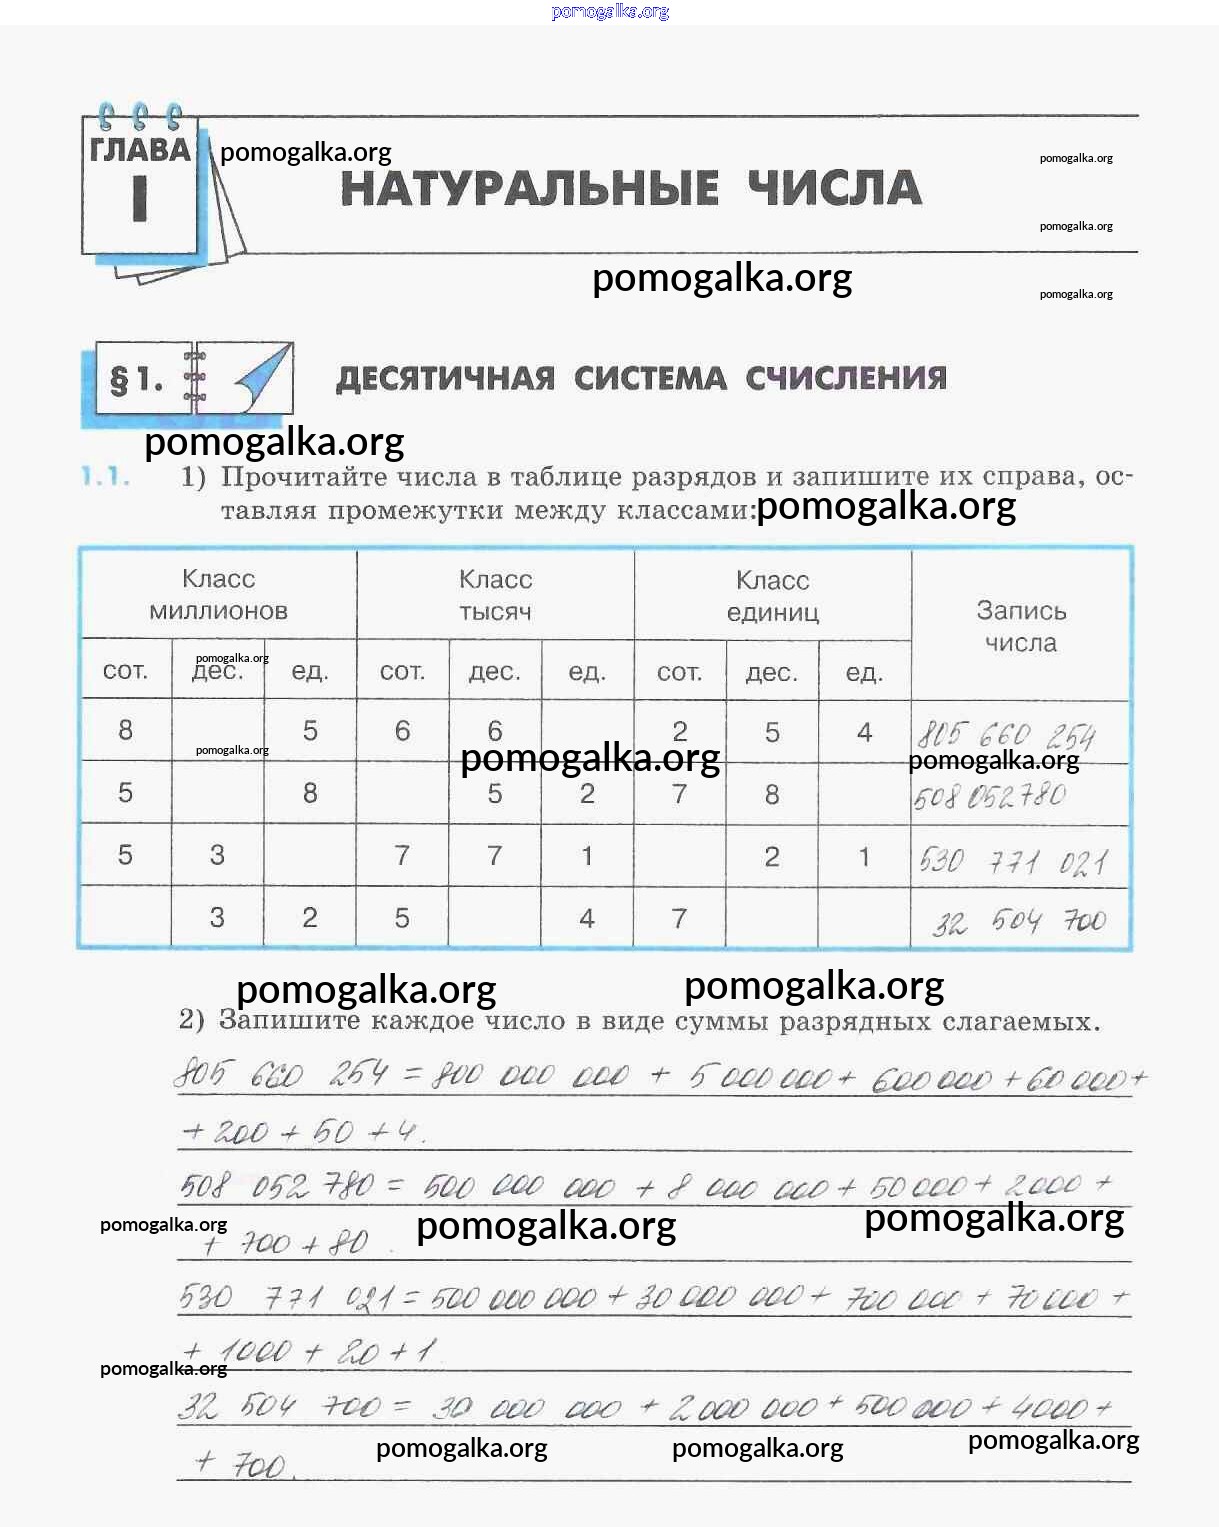 pomogalka.org
ГЛАВА
pomogalka.org
pomogalka.org
I
НАТУРАЛЬНЫЕ ЧИСЛА
pomogalka.org
pomogalka.org
pomogalka.org
§ 1.
ДЕСЯТИЧНАЯ СИСТЕМА СЧИСЛЕНИЯ
pomogalka.org
1.1. 1) Прочитайте числа в таблице разрядов и запишите их справа, ос-
тавляя промежутки между классами:
pomogalka.org
Класс миллионов Класс тысяч Класс единиц Запись числа
сот. дес. ед. сот. дес. ед. сот. дес. ед.
pomogalka.org
8 5 6 6 2 5 4 805 660 254
pomogalka.org pomogalka.org pomogalka.org
5 8 5 2 7 8 508 052 780
5 3 7 7 1 2 1 530 771 021
3 2 5 4 7 32 504 700
pomogalka.org pomogalka.org
2) Запишите каждое число в виде суммы разрядных слагаемых.
805 660 254 = 800 000 000 + 5 000 000 + 600 000 + 60 000 +
+ 200 + 50 + 4.
508 052 780 = 500 000 000 + 8 000 000 + 50 000 + 2000 +
pomogalka.org pomogalka.org pomogalka.org
+ 700 + 80.
530 771 021 = 500 000 000 + 30 000 000 + 700 000 + 70 000 +
+ 1000 + 20 + 1.
pomogalka.org
32 504 700 = 30 000 000 + 2 000 000 + 500 000 + 4000 +
pomogalka.org pomogalka.org pomogalka.org
+ 700.